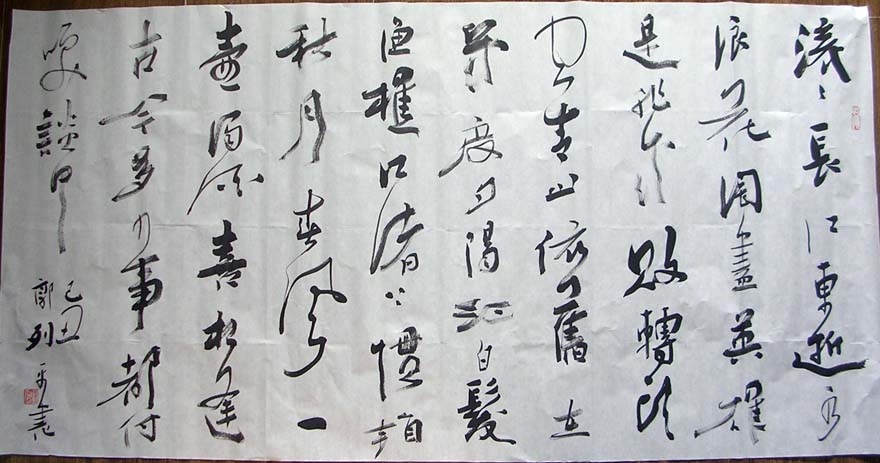 滚〻長江東逝水
浪花淘盡英雄
是非成敗轉頭
空青山依舊在
幾度夕陽紅白髮
漁樵江渚上慣看
秋月春風一
壺濁酒喜相逢
古今多少事都付
笑談中
己丑
郭列平書